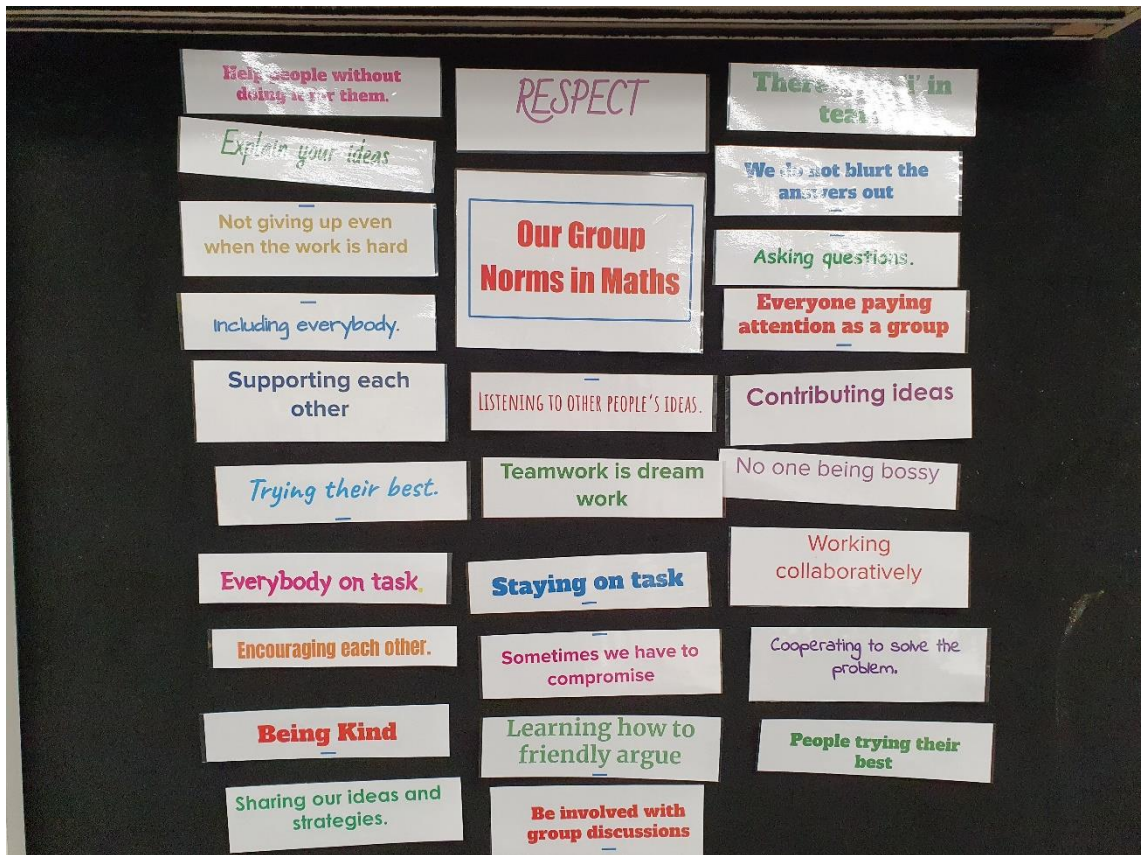 Help people without
doing it for them.
Explain your ideas
Not giving up even
when the work is hard
Including everybody.
Supporting each
other
Trying their best.
Everybody on task.
Encouraging each other.
Being Kind
Sharing our ideas and
strategies.
RESPECT
Our Group
Norms in Maths
LISTENING TO OTHER PEOPLE'S IDEAS.
Teamwork is dream
work
Staying on task
Sometimes we have to
compromise
Learning how to
friendly argue
Be involved with
group discussions
There 'i' in
We do not blurt the
answers out
Asking questions.
Everyone paying
attention as a group
Contributing ideas
No one being bossy
Working
collaboratively
Cooperating to solve the
problem.
People trying their
best